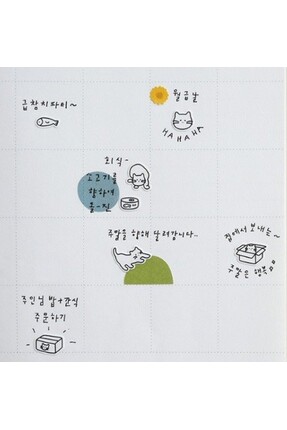 급참치파티~
월급날
HAHAHA
회식-
소고기를
향하여
올-인
주말을 향해 달려갑니다..
집에서 보내는~
주말은 행복
주인님 밥+간식
주문하기